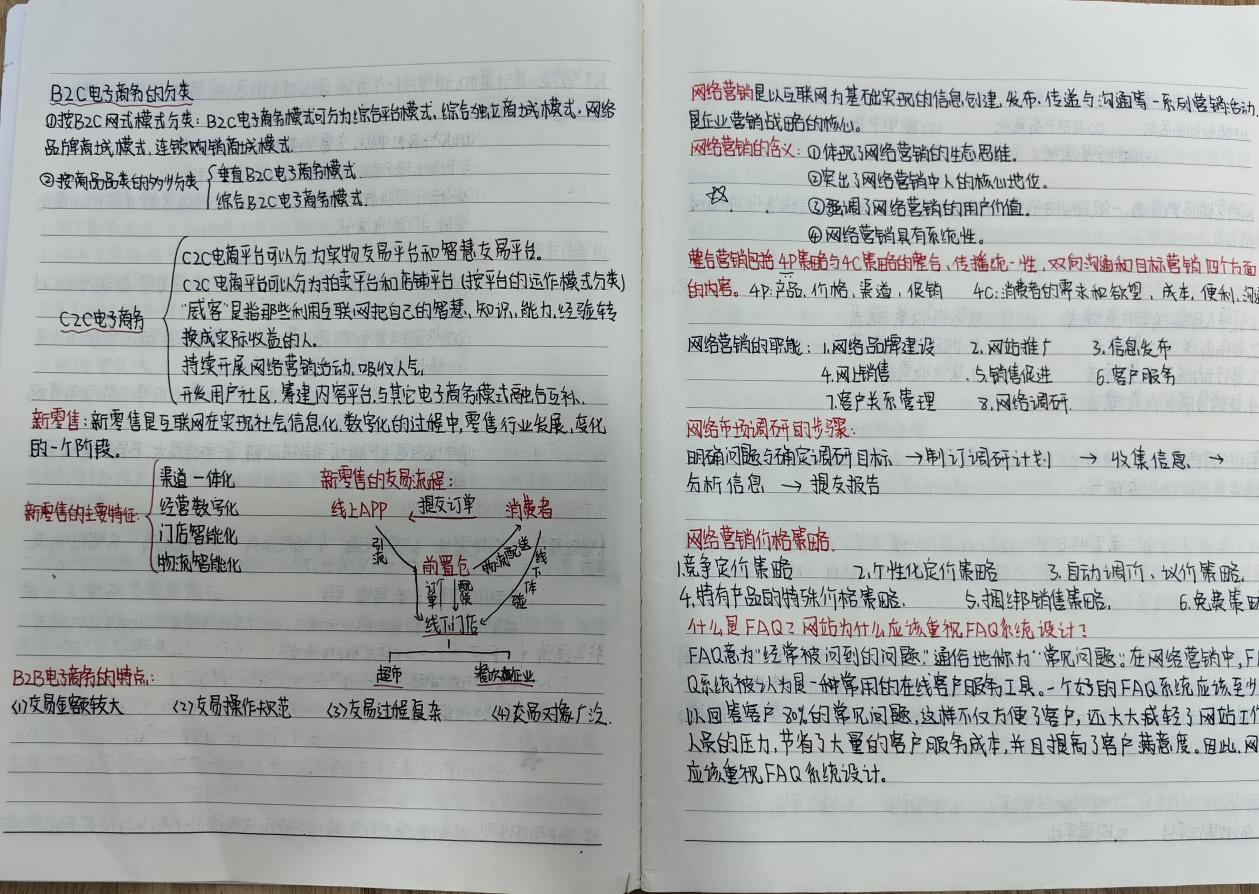 B2C电子商务的分类
①按B2C网式模式分类：B2C电子商务模式可分为综合平台模式、综合独立商城模式、网络
品牌商城模式、连锁购销商城模式.
②按商品品类的划分分类
垂直B2C电子商务模式.
综合B2C电子商务模式.
C2C电子商务
C2C电商平台可以分为实物交易平台和智慧交易平台。
C2C电商平台可以分为拍卖平台和店铺平台（按平台的运作模式分类）
"威客"是指那些利用互联网把自己的智慧、知识、能力、经验转
换成实际收益的人。
持续开展网络营销活动、吸收人气.
开发用户社区，筹建内容平台，与其它电子商务模式融合互补、
新零售：新零售是互联网在实现社会信息化、数字化的过程中，零售行业发展、变化
的一个阶段。
新零售的主要特征：
渠道一体化
经营数字化
门店智能化
物流智能化
新零售的交易流程：
线上APP
提交订单
消费者
引流
前置仓
物流配送
线下体验
订单
配集
线下门店
超市
餐饮企业
B2B电子商务的特点：
(1)交易金额较大 (2)交易操作规范 (3)交易过程复杂 (4)交易对像广泛.
网络营销是以互联网为基础实现的信息创建、发布、传递与沟通等一系列营销活动，
是企业营销战略的核心。
网络营销的含义：①体现了网络营销的生态思维。
②突出了网络营销中人的核心地位。
③强调了网络营销的用户价值。
④网络营销具有系统性。
整合营销包括4P策略与4C策略的整合、传播统一性，双向沟通和目标营销四个方面
的内容。4P：产品、价格，渠道，促销 4C：消费者的需求和欲望，成本，便利，沟通
网络营销的职能：1.网络品牌建设 2.网站推广 3.信息发布
4.网上销售 5.销售促进 6.客户服务
7.客户关系管理 8.网络调研.
网络市场调研的步骤：
明确问题与确定调研目标 →制订调研计划 → 收集信息 →
分析信息 → 提交报告
网络营销价格策略.
1.竞争定价策略 2.个性化定价策略 3.自动调价、议价策略.
4.特有产品的特殊价格策略. 5.捆绑销售策略. 6.免费策
什么是FAQ？网站为什么应该重视FAQ系统设计？
FAQ意为"经常被问到的问题"，通俗地称为"常见问题"；在网络营销中，FA
Q系统被认为是一种常用的在线客户服务工具。一个好的FAQ系统应该至少
以回答客户80%的常见问题，这样不仅方便了客户，还大大减轻了网站工作
人员的压力，节省了大量的客户服务成本，并且提高了客户满意度。因此，网
应该重视FAQ系统设计。